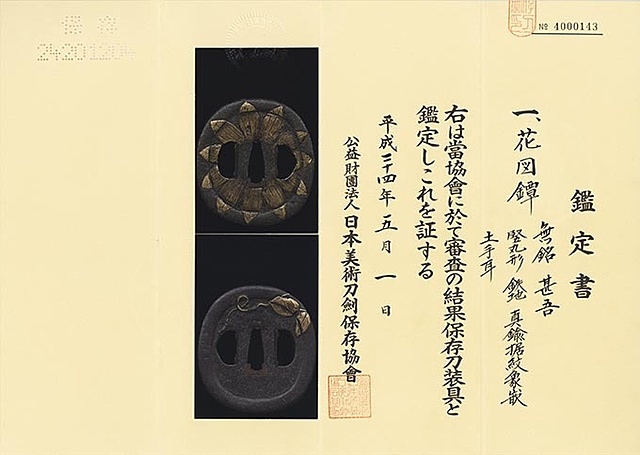 № 4000143
鑑定書
一、花図鐔 無銘 甚吾
竪丸形 鉄地 真鍮据紋象嵌
土手耳
右は當協會に於て審査の結果保存刀装具と
鑑定しこれを証する
平成二十四年五月一日
公益財團法人 日本美術刀劍保存協會
保存